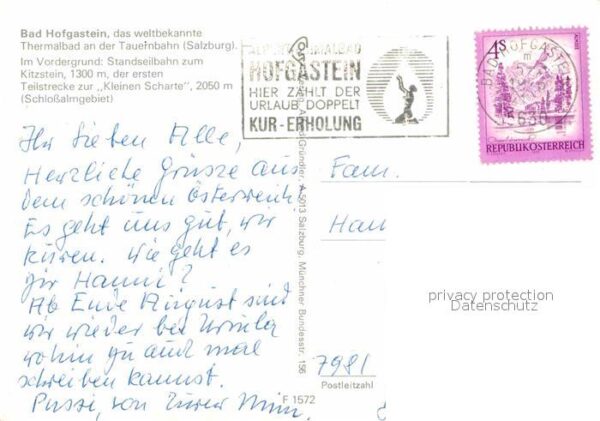 Bad Hofgastein, das weltbekannte
Thermalbad an der Tauernbahn (Salzburg).
Im Vordergrund: Standseilbahn zum
Kitzstein, 1300 m, der ersten
Teilstrecke zur „Kleinen Scharte", 2050 m
(Schloßalmgebiet)
HOFGASTEIN
HIER ZÄHLT DER
URLAUB DOPPELT
KUR-ERHOLUNG
BAD HOFGASTEIN
630
4S
REPUBLIK ÖSTERREICH
Ihr Lieben Alle,
Herzliche Grüsse aus
dem schönen Österreich.
Es geht uns gut, wir
kuren. Wie geht es
Dir Hanni?
Ab Ende August sind
wir wieder bei Ursula
wohin Du auch mal
schreiben kannst.
Bussi, von Eurer Mimi.
Gründler, A-5013 Salzburg, Münchner Bundesstr. 156
F 1572
Fam.
Han
7981
Postleitzahl
privacy protection
Datenschutz